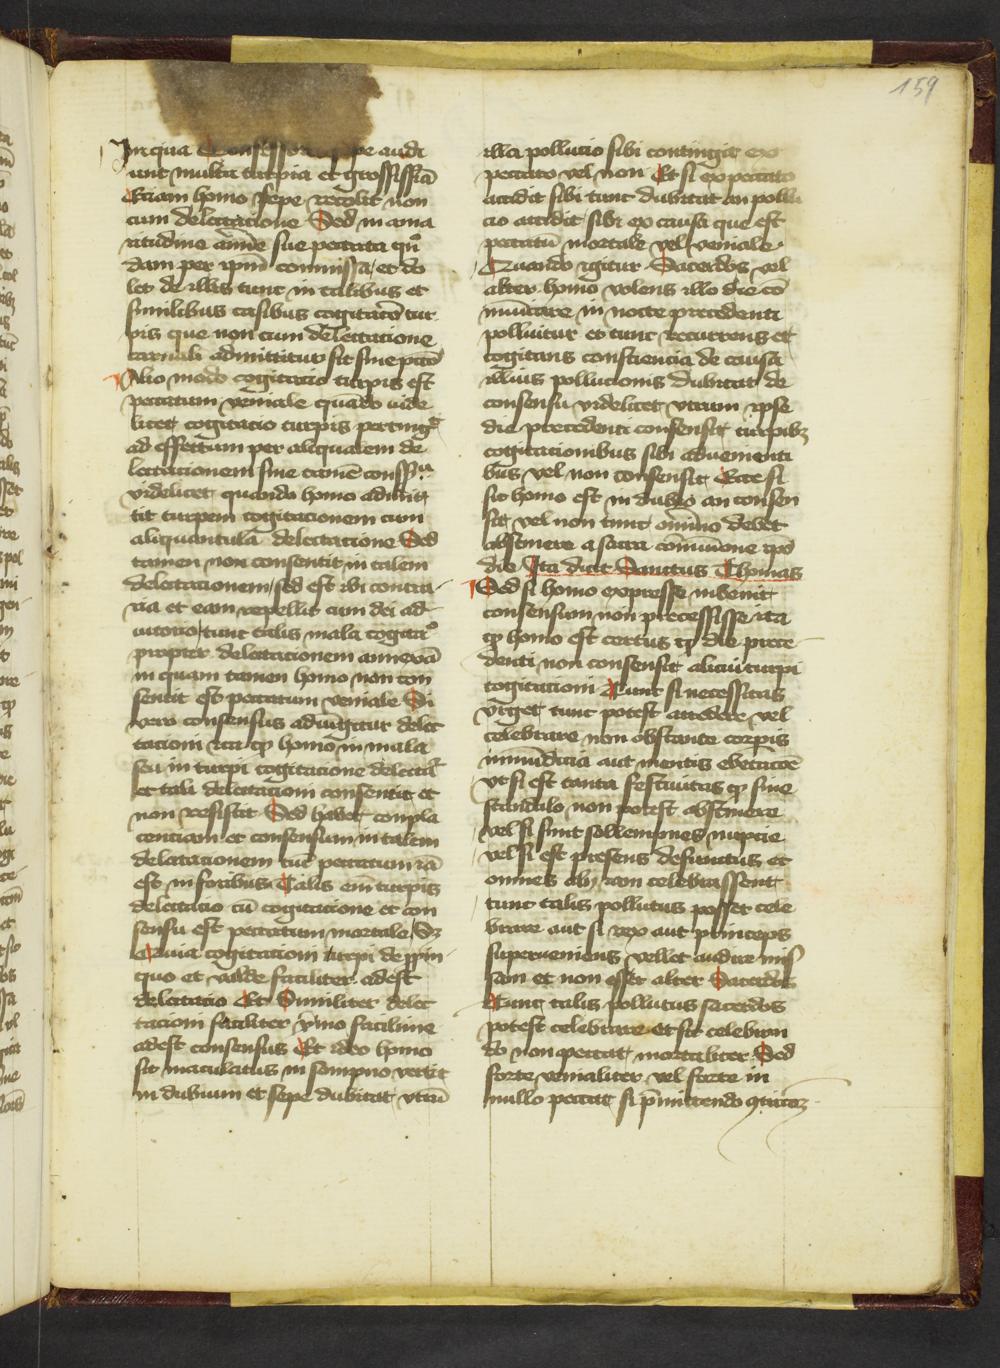 159
In qua Confessores sepe audi
unt multa turpia et grossissīa
Etiam homo sepe recolit non
cum delectacione Sed in ama
ritudine anīe sue peccata qn̄
dam per ipm̄ commissa, et do
let de illis tunc in talibus et
similibus casibus cogitac̄o tur
pis que non cum delectacione
carnali admittitur fit sine pctō
Alio modo cogitacio turpis est
peccatum veniale quādo vide
licet cogitacio turpis pertingit
ad effectum per aliqualem de
lectacionem sine tamē consensu
videlicet quando homo admit
tit turpem cogitacionem cum
aliquantula delectacione Sed
tamen non consentit in talem
delectacionem, sed est ibi contra
ria et eam repellit cum dei ad
iutorio, tunc talis mala cogitac̄o
propter delectacionem annexā
in quam tamen homo non con
sentit est peccatum veniale Si
vero consensus adiungitur delec
tacioni ita qꝫ homo in mala
seu in turpi cogitacione delectat̄
et tali delectacioni consentit et
non resistit Sed habet compla
cenciam et consensum in talem
delectacionem tūc peccatum iā
est in foribus Talis em̄ turpis
delectacio cū cogitacione et con
sensu est peccatum mortale,
Quia cogitacioni turpi de ppin
quo et valde faciliter adest
delectacio Et Similiter delec
tacioni faciliter ymo facilime
adest consensus Et ideo homo
sic maculatus in sompno vertit
in dubium et sepe dubitat vtrū
illa pollucio sibi contingit ex
peccato vel non Et si ex peccato
accidit sibi tunc dubitat an pollu
cio accidit sibi ex causa que est
peccatū mortale vel veniale
Quando igitur Sacerdos vel
alter homo volens illo die cō
municare in nocte precedenti
polluitur et tunc recurrens et
cogitans consciencia de causa
illius pollucionis dubitat de
consensu videlicet vtrum ipse
die precedenti consensit turpibꝫ
cogitacionibus sibi advenienti
bus vel non consensit Ecce si
sic homo est in dubio an consen
sit vel non tunc omīno debet
abstinere a sacra cōmūnione ipō
die Ita dicit Sanctus Thomas
Sed si homo expresse invenit
consensum non precessisse ita
qꝫ homo est certus qꝫ die prece
denti non consensit alicui turpi
cogitacioni Tunc si necessitas
vrget tunc potest accedere vel
celebrare non obstante corpis
inmūdicia aut mentis ebetacōe
vt si est tanta festiuitas qꝫ sine
scandalo non potest abstinere
vel si sunt sollempnes nupcie
vel si est presens defunctus et
omnes alij iam celebrassent
tunc talis pollutus posset cele
brare aut si rex aut princeps
superveniens vellet audire mis
sam et non esset alter Sacerdos
Tunc talis pollutus sacerdos
potest celebrare et sic celebran
do non peccat mortaliter Sed
forte venialiter vel forte in
nullo peccat si p̄mittendo